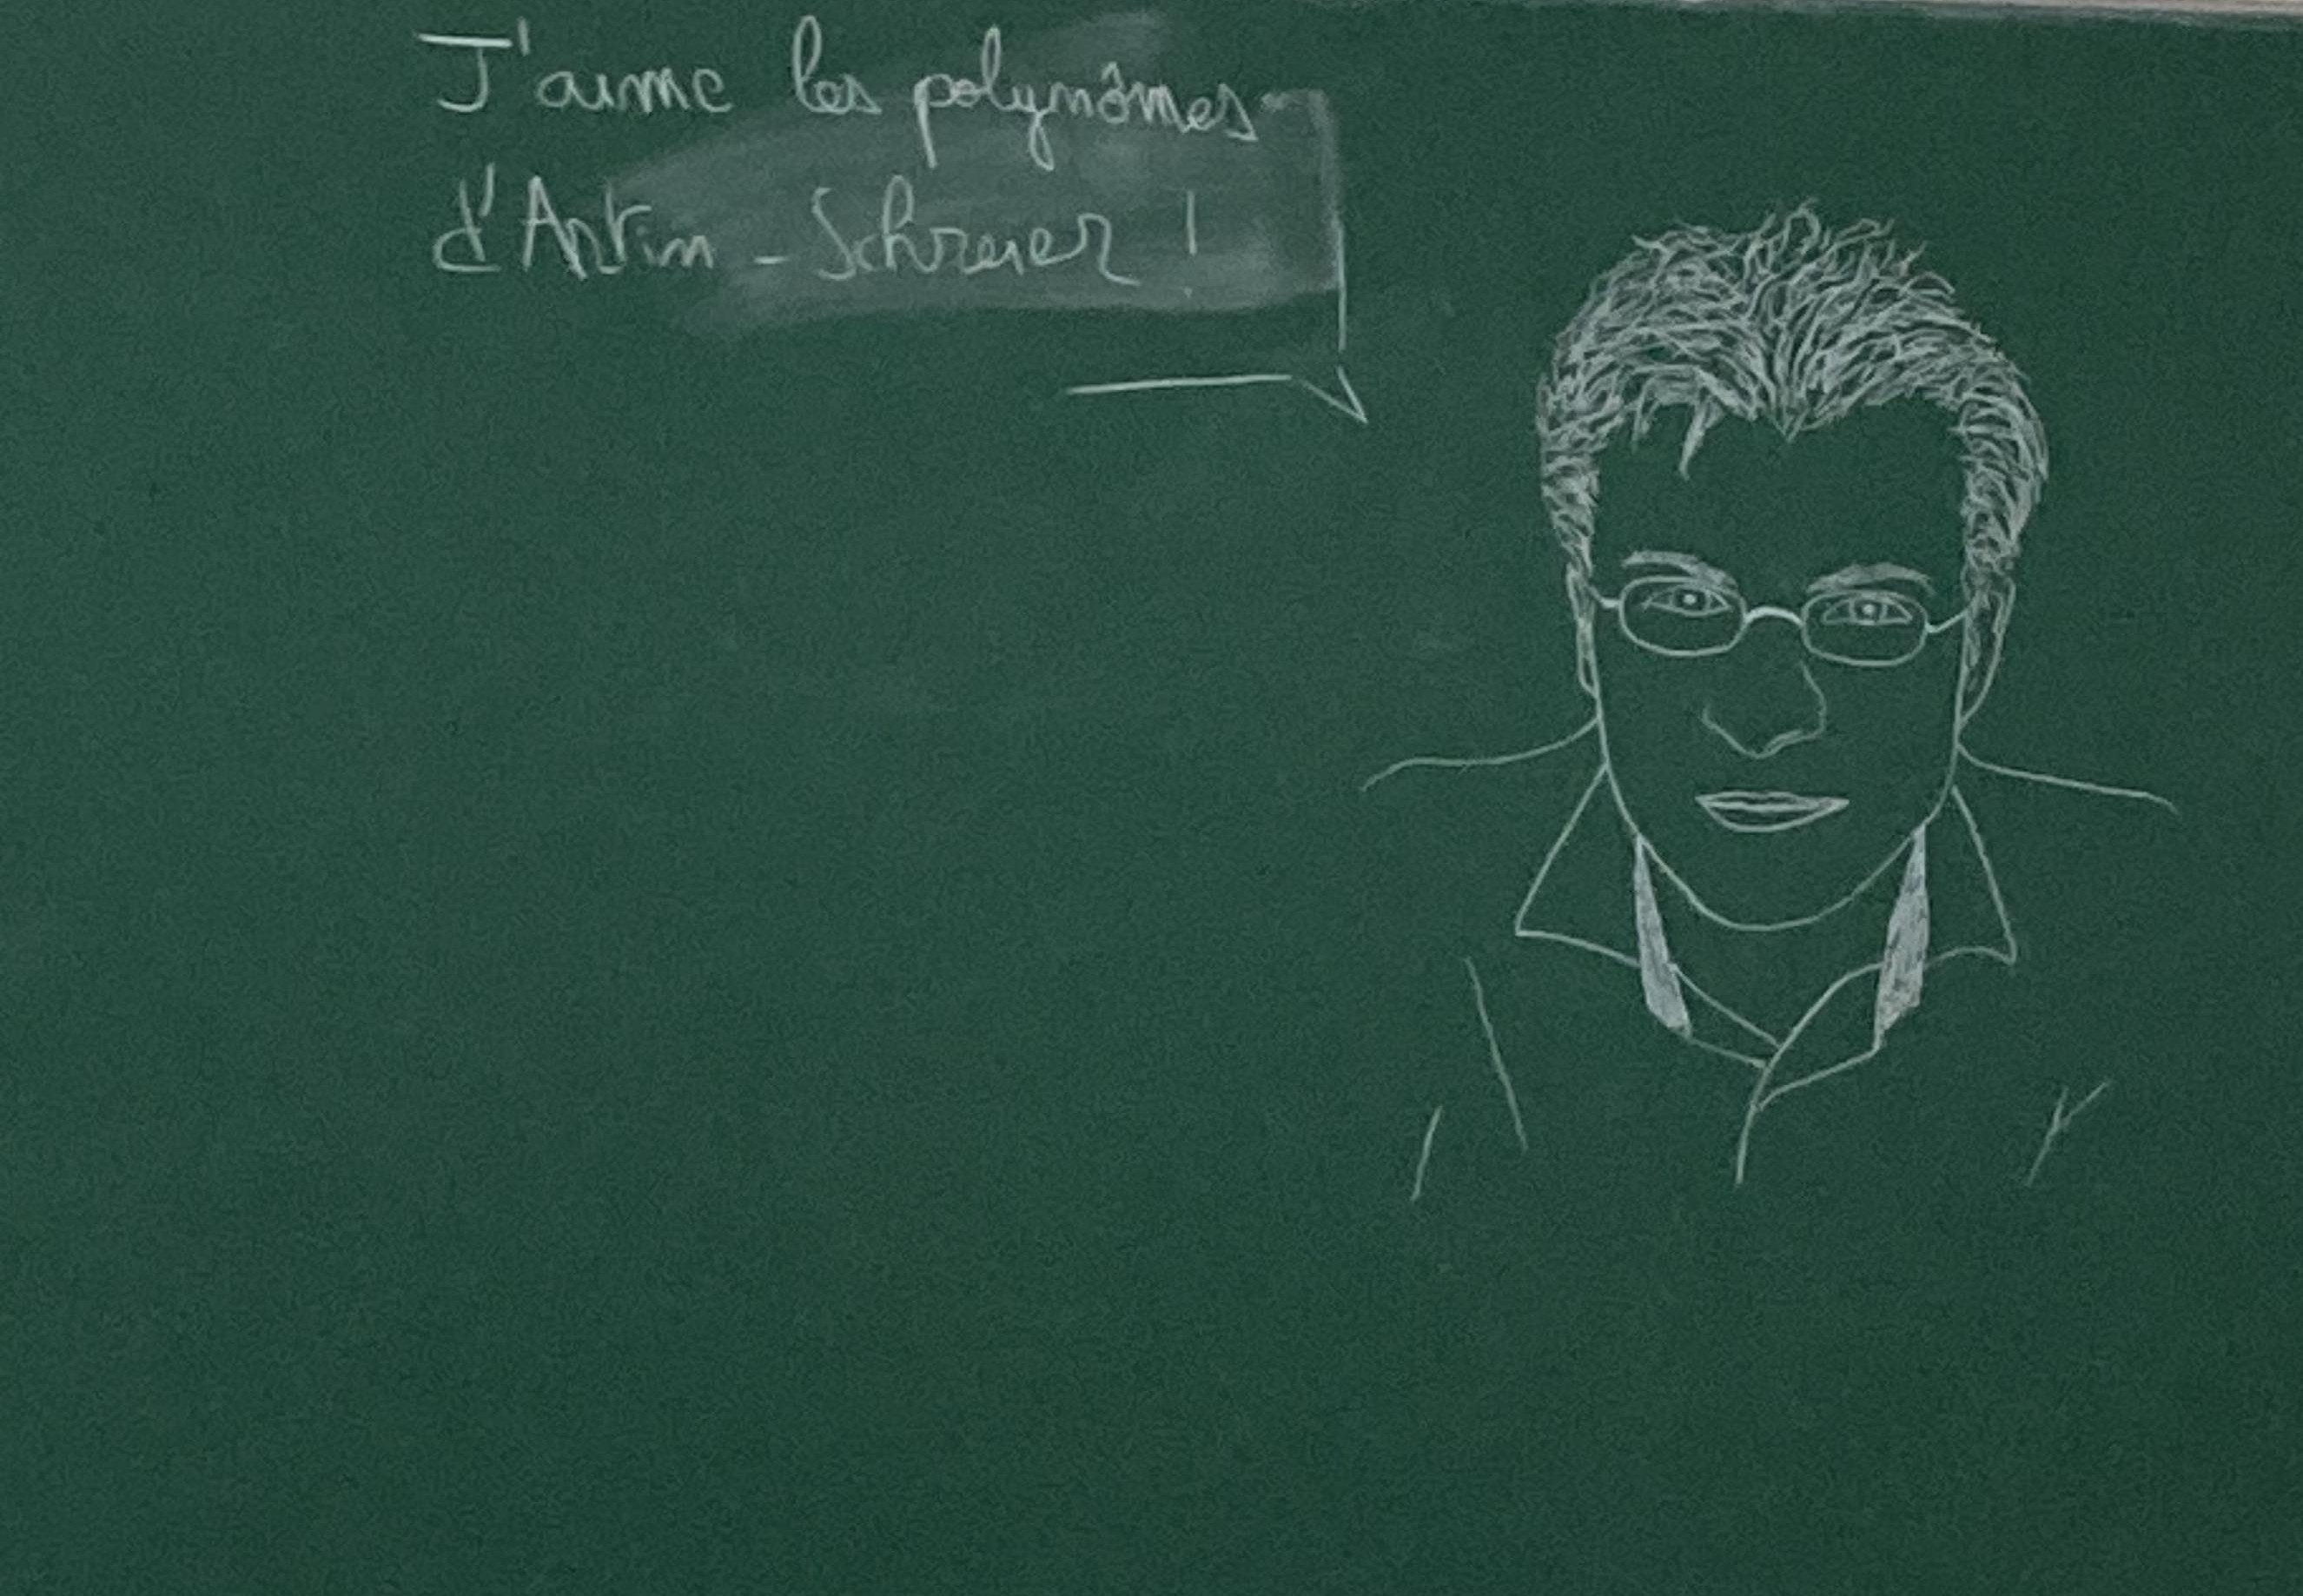 J'aime les polynômes
d'Artin-Schreier !